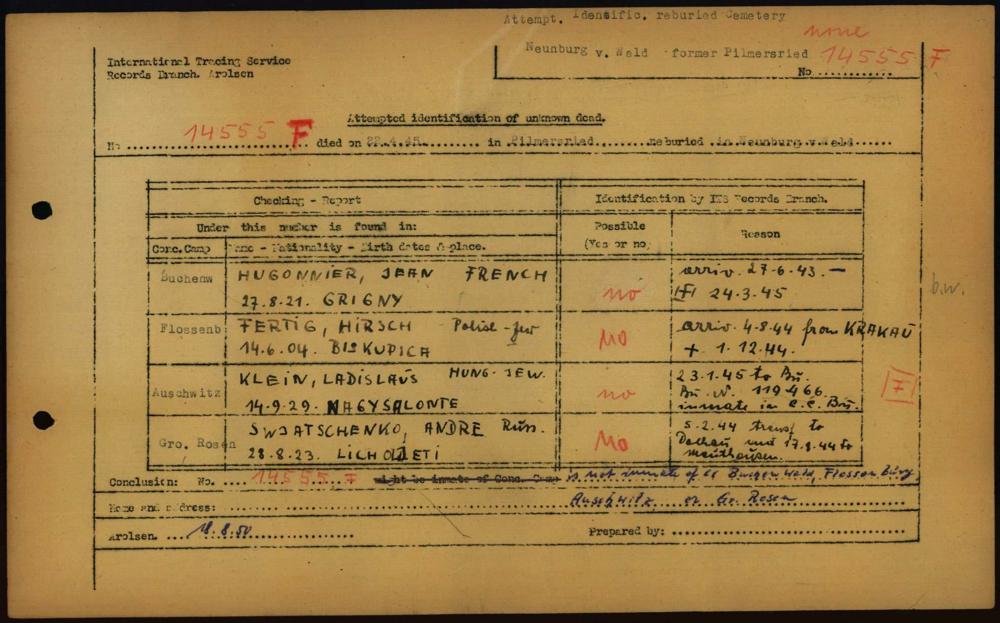 Attempt. Identific. reburied Cemetery
none
Neunburg v. Wald former Pilmersried 14555 F
No.............
International Tracing Service
Records Branch. Arolsen
Attempted identification of unknown dead.
No 14555 F died on 22.4.45. in Pilmersried reburied in Neunburg v. Wald
Checking - Report
Identification by ITS Records Branch.
Under this number is found in:
Possible
(Yes or no)
Reason
Conc. Camp Name - Nationality - Birth dates & place.
Buchenw HUGONNIER, JEAN FRENCH
27.8.21. GRIGNY
no
arriv. 27-6-43. —
24-3-45
b.w.
Flossenb FERTIG, HIRSCH Polish - Jew
14.6.04. BISKUPICA
No
arriv. 4-8-44 from KRAKAU
+ 1.12.44.
Auschwitz KLEIN, LADISLAUS HUNG-JEW.
14.9.29. NAGYSALONTE
no
23.1.45 to Bu.
Bu. N. 119466
inmate in C.C. Bu.
F
Gro. Rosen SWJATSCHENKO, ANDRE Russ.
28.8.23. LICHOLETI
No
5.2.44 transf to
Dachau, und 17.8.44 to
Mauthausen.
Conclusion: No. .... 14555 F might be inmate of Conc. Camp is not inmate of CC Buchenwald, Flossenbürg
Auschwitz or Gr. Rosen
Name and address:
Arolsen. .... 18.8.50
Prepared by: